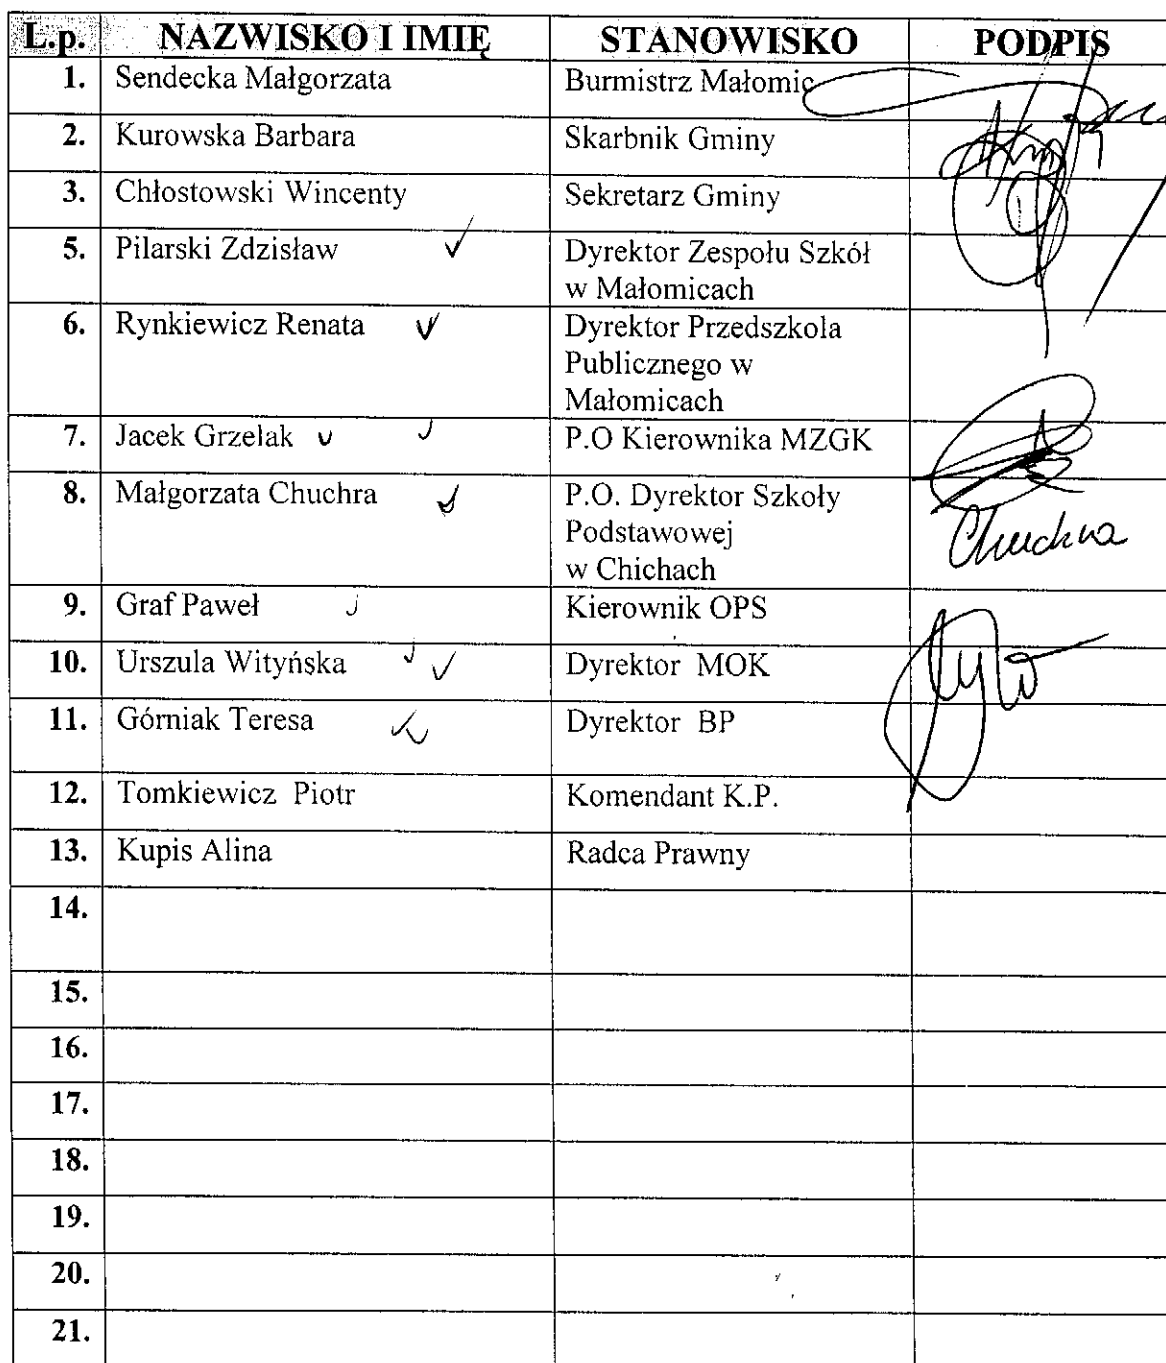 L.p. NAZWISKO I IMIĘ STANOWISKO PODPIS
1. Sendecka Małgorzata Burmistrz Małomic
2. Kurowska Barbara Skarbnik Gminy
3. Chłostowski Wincenty Sekretarz Gminy
5. Pilarski Zdzisław Dyrektor Zespołu Szkół
w Małomicach
6. Rynkiewicz Renata Dyrektor Przedszkola
Publicznego w
Małomicach
7. Jacek Grzelak P.O Kierownika MZGK
8. Małgorzata Chuchra P.O. Dyrektor Szkoły
Podstawowej
w Chichach
Chuchra
9. Graf Paweł Kierownik OPS
10. Urszula Wityńska Dyrektor MOK
11. Górniak Teresa Dyrektor BP
12. Tomkiewicz Piotr Komendant K.P.
13. Kupis Alina Radca Prawny
14.
15.
16.
17.
18.
19.
20.
21.